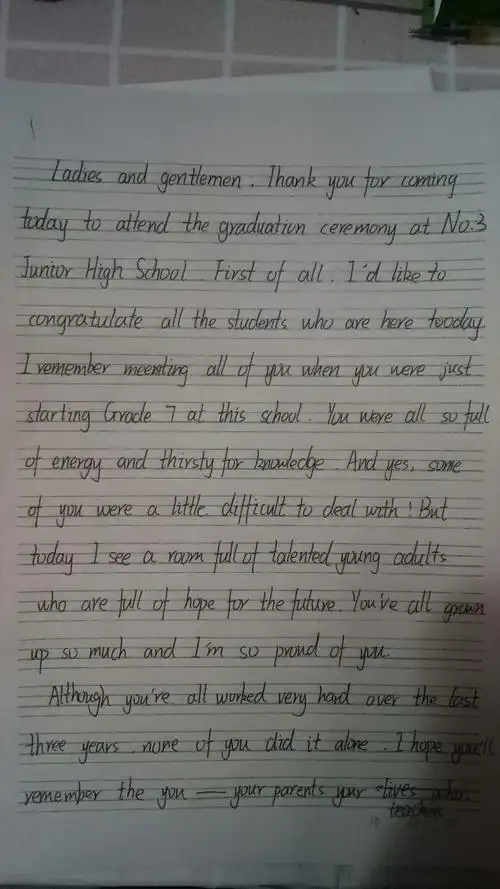 Ladies and gentlemen. Thank you for coming
today to attend the graduation ceremony at No.3
Junior High School. First of all. I'd like to
congratulate all the students who are here tooday.
I remember meeting all of you when you were just
starting Grade 7 at this school. You were all so full
of energy and thirsty for knowledge. And yes, some
of you were a little difficult to deal with! But
today I see a room full of talented young adults
who are full of hope for the future. You've all grown
up so much and I'm so proud of you.
Although you've all worked very hard over the last
three years. none of you did it alone. I hope you'll
remember the you — your parents your lives who
teachers